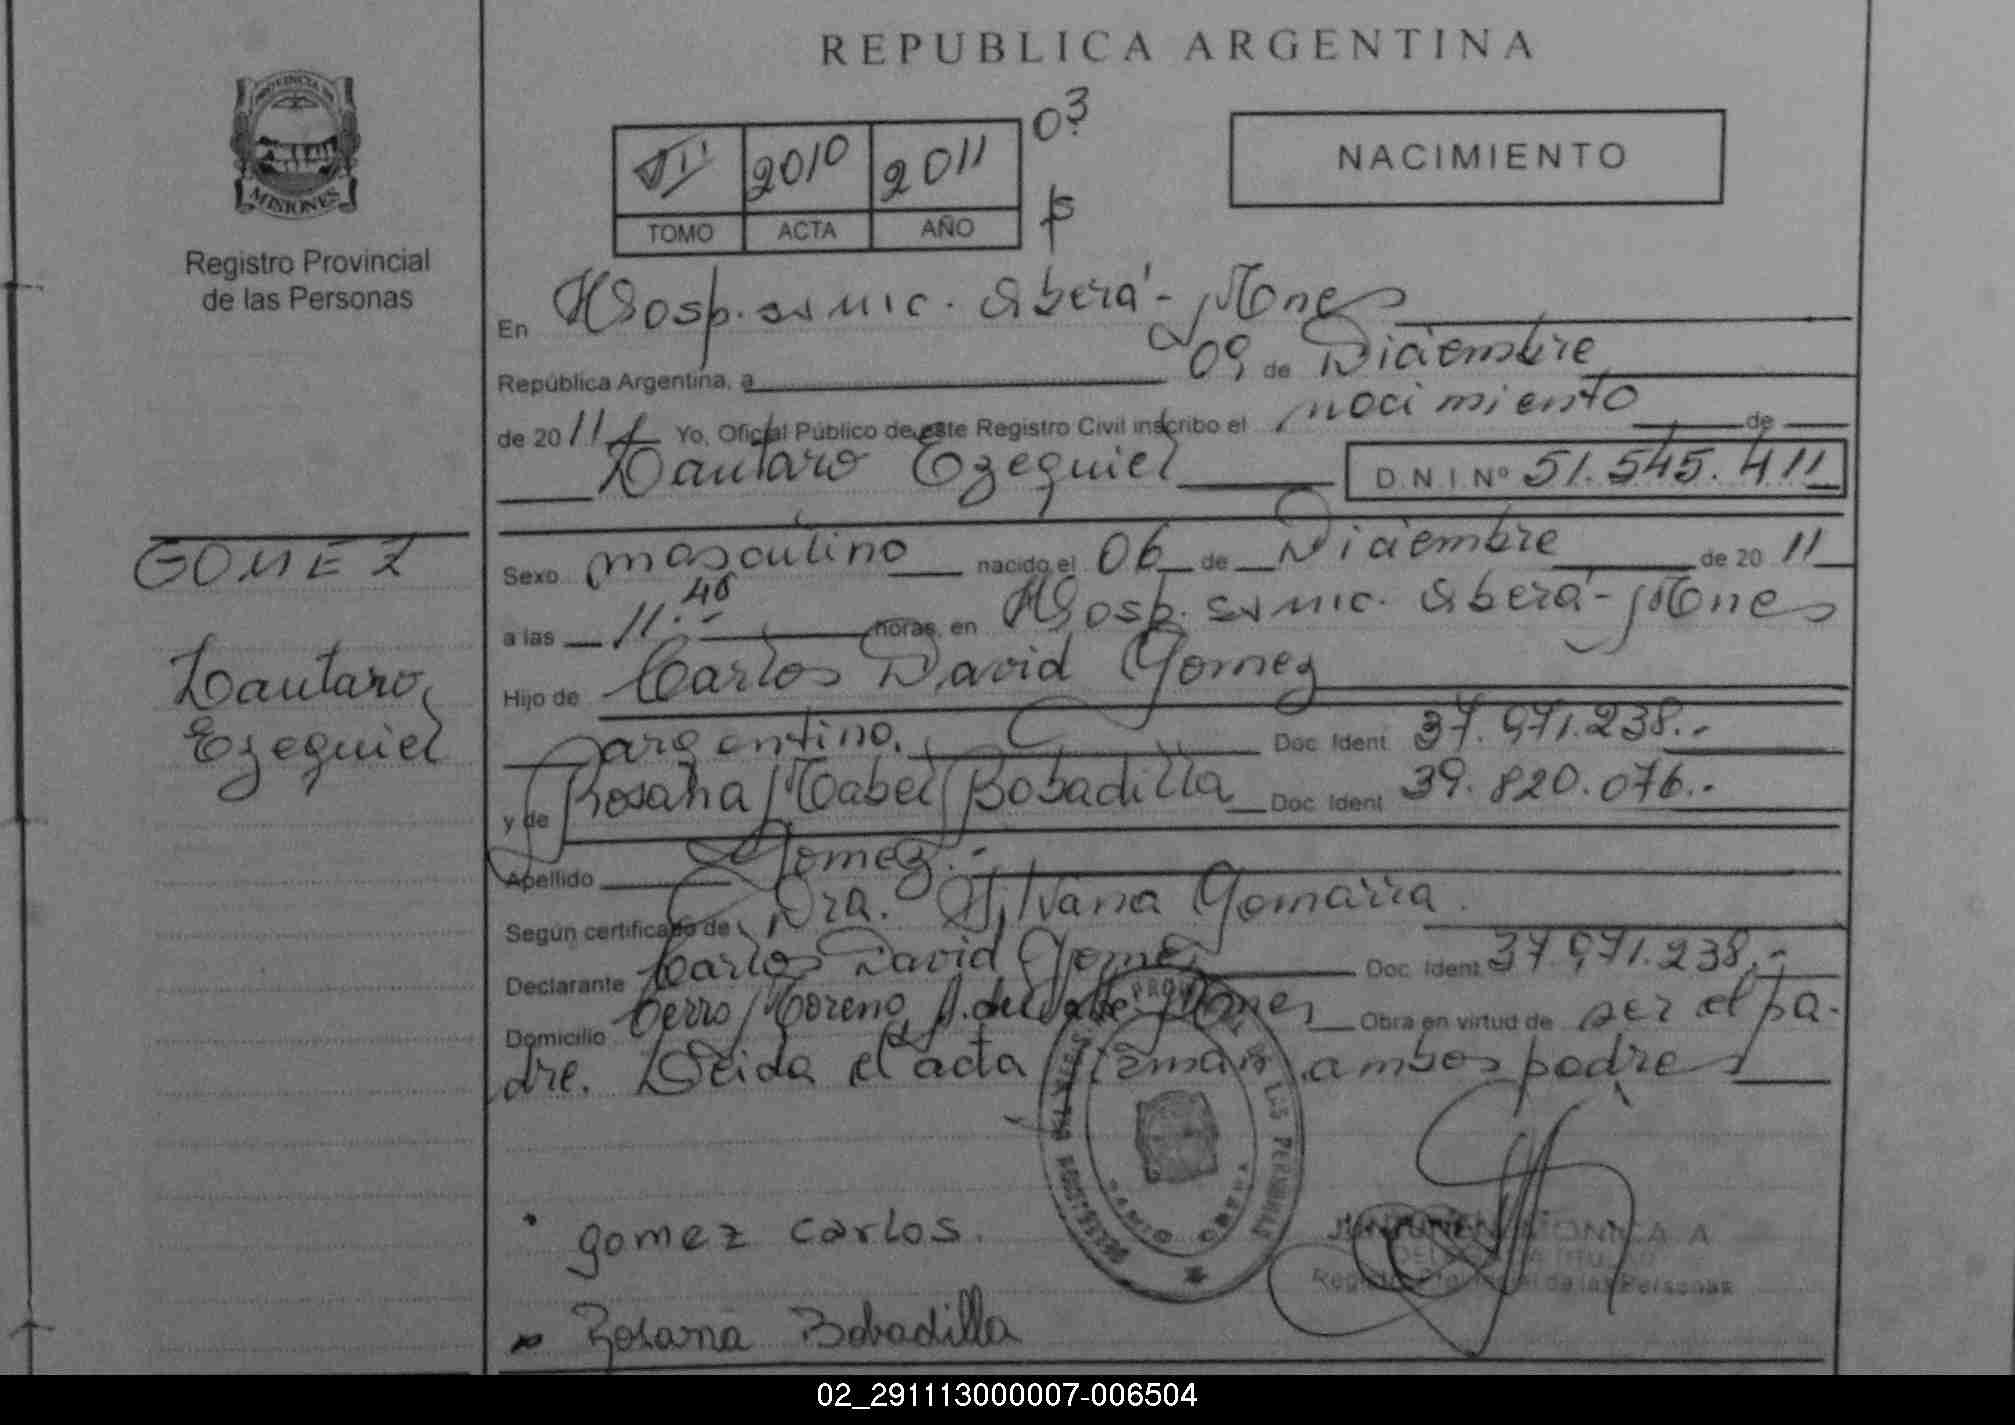 REPUBLICA ARGENTINA
PROVINCIA DE
MISIONES
Registro Provincial
de las Personas
VII 2010 2011 03
TOMO ACTA AÑO
NACIMIENTO
En Hosp. Oberá - Mnes
República Argentina, a 09 de Diciembre
de 2011 Yo, Oficial Público de este Registro Civil inscribo el nacimiento de
Lautaro Ezequiel D.N.I Nº 51.545.411
GOMEZ
Lautaro
Ezequiel
Sexo masculino nacido el 06 de Diciembre de 2011
a las 11.- horas, en Hosp. Oberá - Mnes
Hijo de Carlos David Gomez
argentino. Doc Ident 37.971.238.-
y de Rosana Mabel Bobadilla Doc Ident 39.820.076.-
Apellido Gomez.-
Según certificado de Dra. Silvana Gomarra.
Declarante Carlos David Gomez Doc Ident 37.971.238.-
Domicilio Cerro Moreno Mnes Obra en virtud de ser el pa-
dre. Leida el acta firman ambos padres
gomez carlos.
Rosana Bobadilla
MONICA A
Registro Provincial de las Personas
02_291113000007-006504